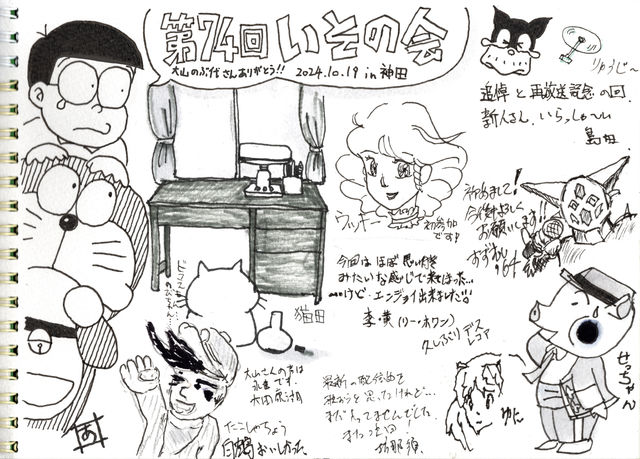 第74回 いその会
大山のぶ代さんありがとう!! 2024.10.19 in 神田
りゅうじ〜
追悼と再放送記念の回
新人さん、いらっしゃ〜い
島田
初めまして!
今後ともよろしく
お願いします!!
'64
ウッキー
初参加
です!
今回は ほぼ 思いつき
みたいな感じで来ちゃった…
…けど エンジョイ出来ました!!
李 漢 (リー・ホワン)
久しぶりデス
レコア
猫田
のび太くん…
大山さんの声は
永遠です。
たこしゃちょう
白鶴 おいしかった
最新の
まにあってませんでした
また次回!
ゆに
せっちゃん
あ